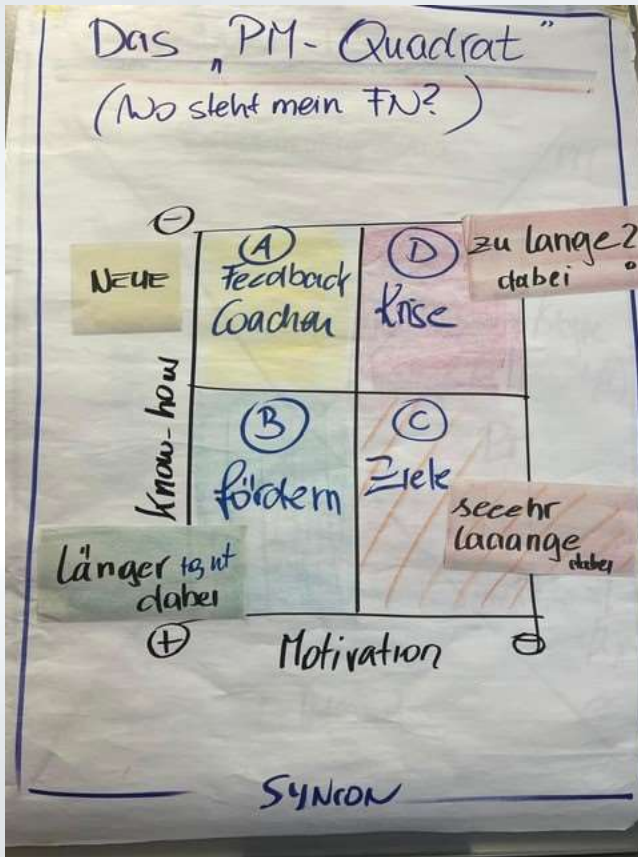 Das „PM-Quadrat"
(Wo steht mein FN?)
⊖
NEUE
A
Feedback
Coachen
D
Krise
zu lange?
dabei
Know-how
B
fördern
C
Ziele
seeehr
laaange
dabei
Länger
dabei
⊕
Motivation
⊖
SYNCON